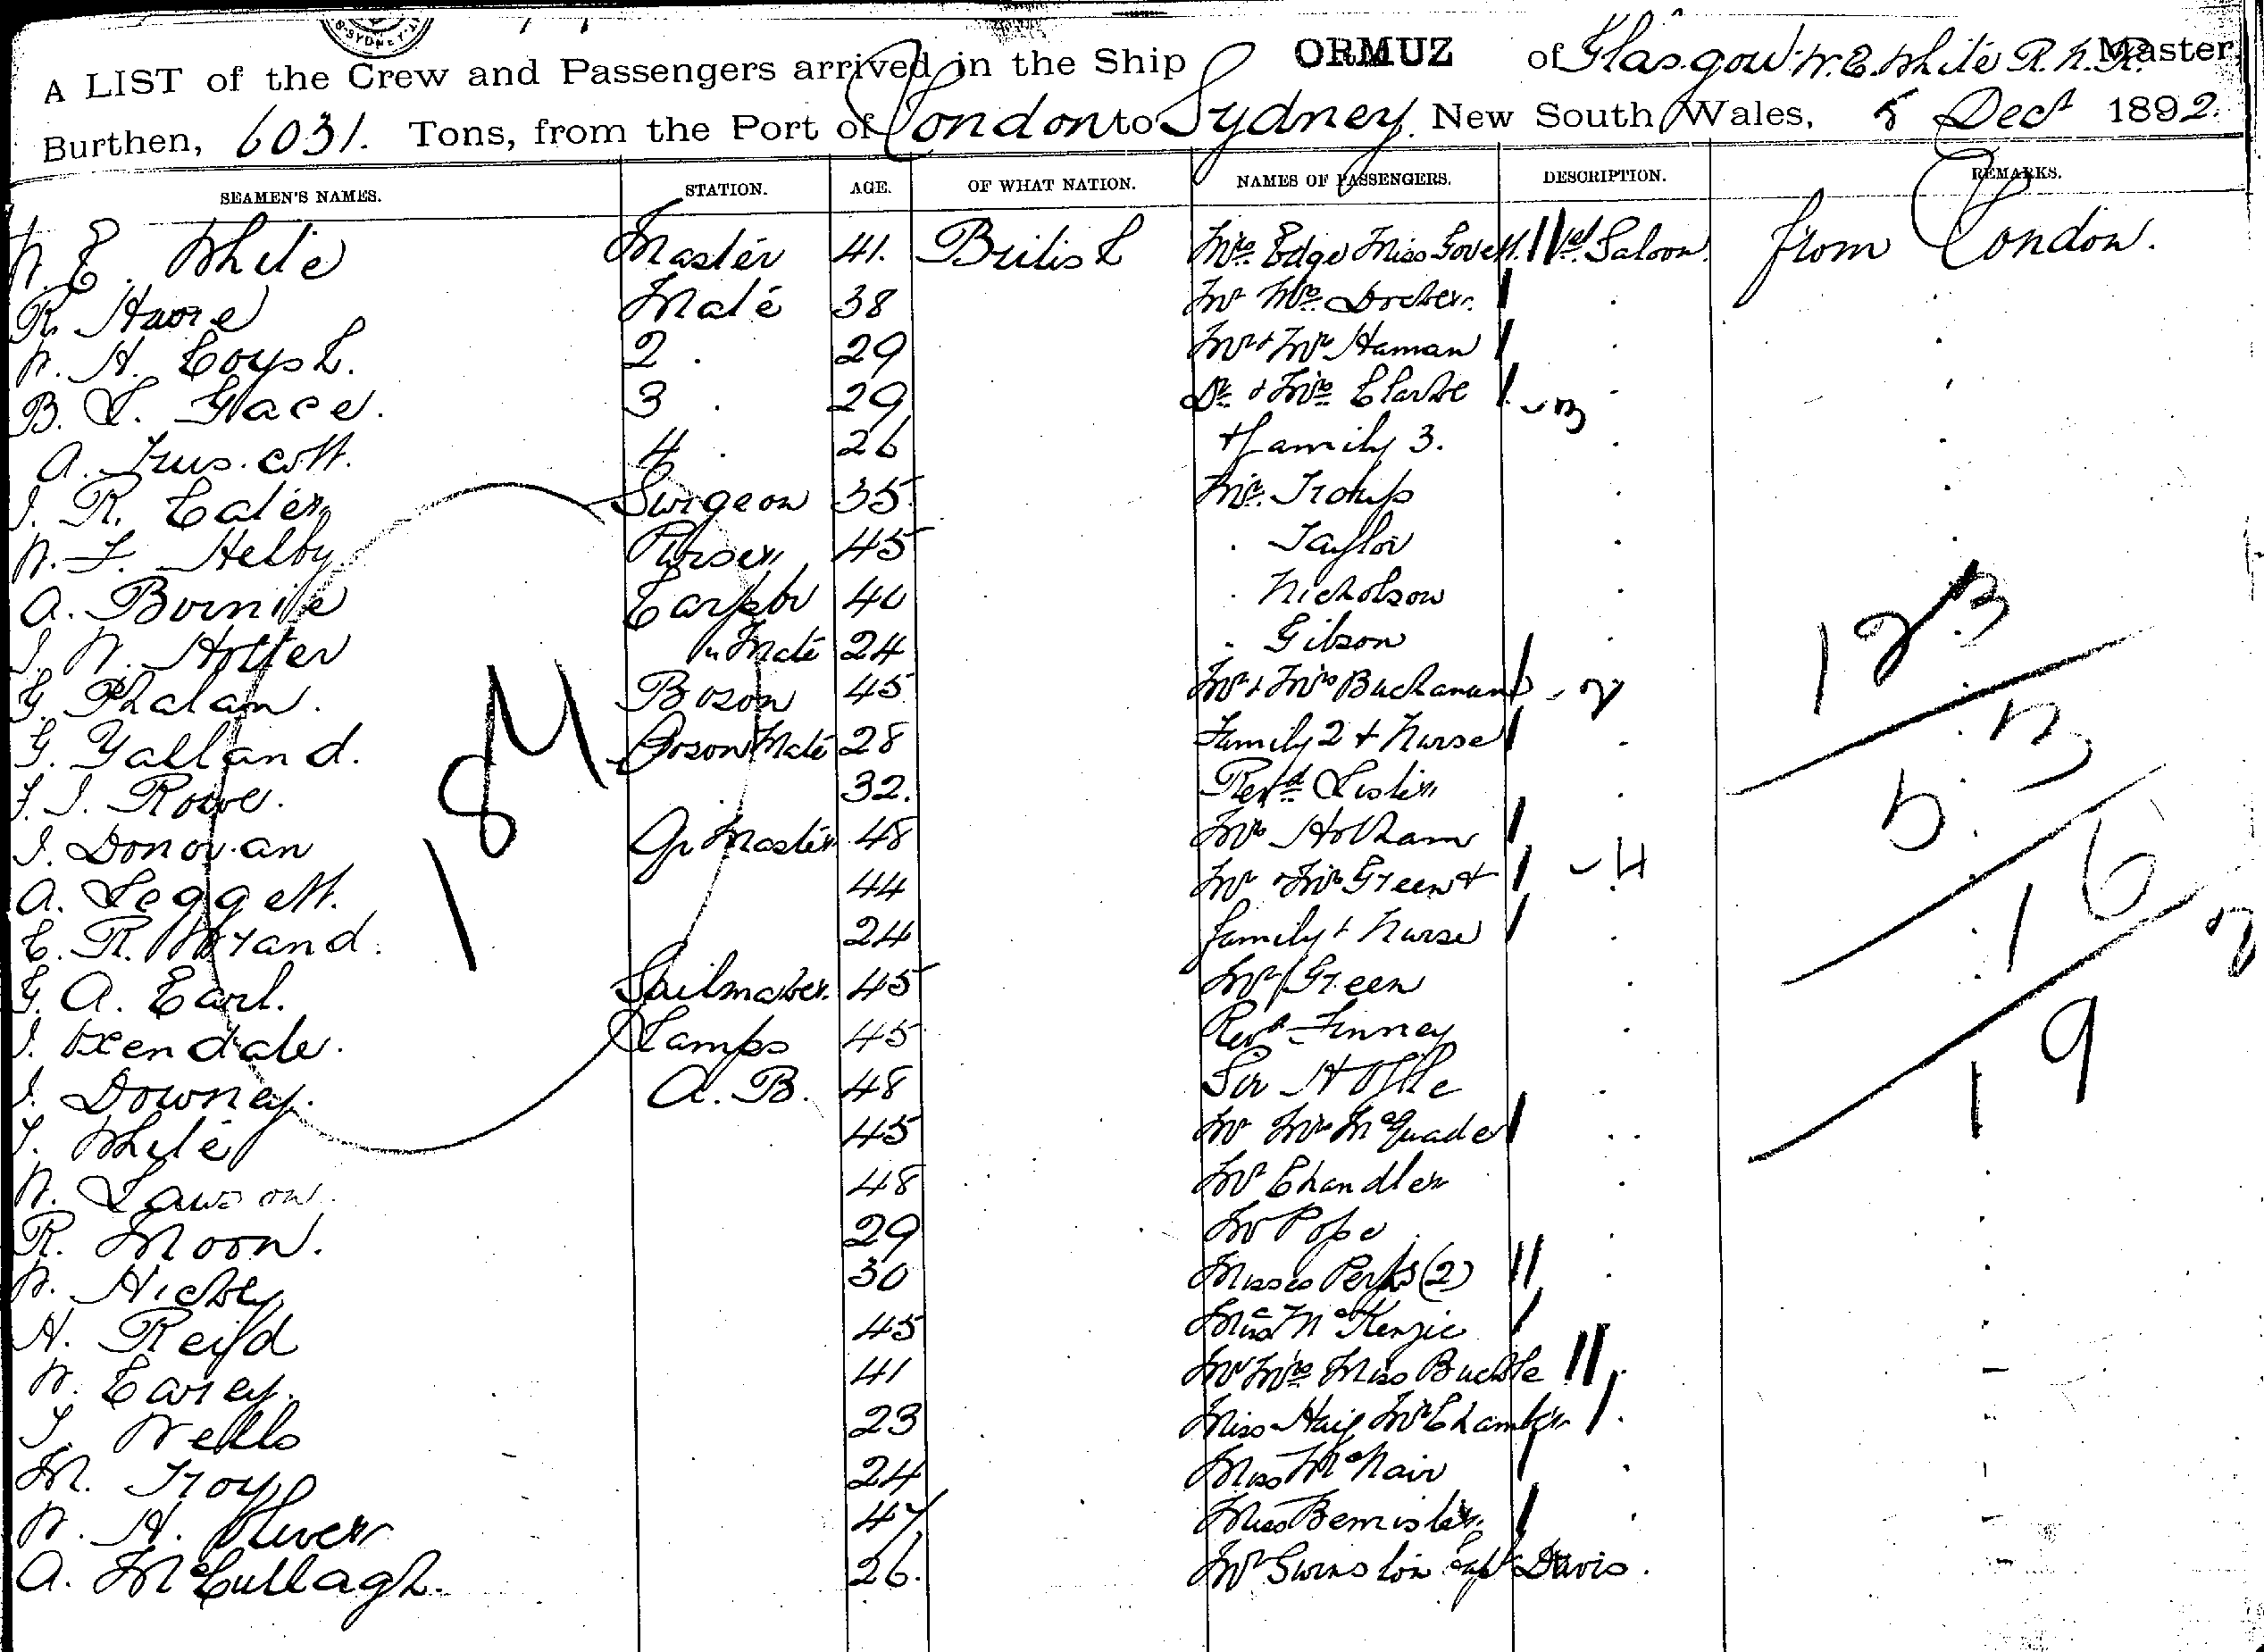 SYDNEY
A LIST of the Crew and Passengers arrived in the Ship ORMUZ of Glasgow W. E. White R. N. R. Master,
Burthen, 6031. Tons, from the Port of London to Sydney. New South Wales, 5 Dec 1892.
SEAMEN'S NAMES. STATION. AGE. OF WHAT NATION. NAMES OF PASSENGERS. DESCRIPTION. REMARKS.
W. E. White Master 41. British Mrs Edge Miss 1st Saloon from London.
R. Mate 38 Mr Mrs
W. H. 2 . 29 Mr + Mrs Haman
B. 3 . 29 Dr + Mrs Clarke - 3
A. Truscott. 4 . 26 + family 3.
J. R. Surgeon 35 Mr
W. F. Helby Purser 45 Taylor
A. 40 Nicholson
J. W. " Mate 24 Gibson
G. Phalan. Boson 45 Mr + Mrs Buchanan - 2
G. Yalland. Boson Mate 28 Family 2 + Nurse
Rowe. 32. Revd
J. Donovan Qr Master 48 Hotham
A. Leggett. 44 Mr + Mrs Green + - 4
24 family + Nurse
G. A. Earl. Sailmaker 45 Mr Green
J. Oxendale. Lamps 45 Revd Finney
J. Downey. A. B. 48 Sir
T. White 45 Mr Mrs McQuade
W. Lawson 48 Mr Chandler
R. Moon. 29 Mr Pope
W. Hickey 30 Misses Perks (2)
H. Reid 45 McKenzie
W. Carey. 41 Mr Mrs Miss Buckle
T. Wells 23 Miss Haig
M. Troy 24 Miss McNair
W. H. Oliver 47 Miss Bemister
A. McCullagh. 26. Mr Capt Davis.